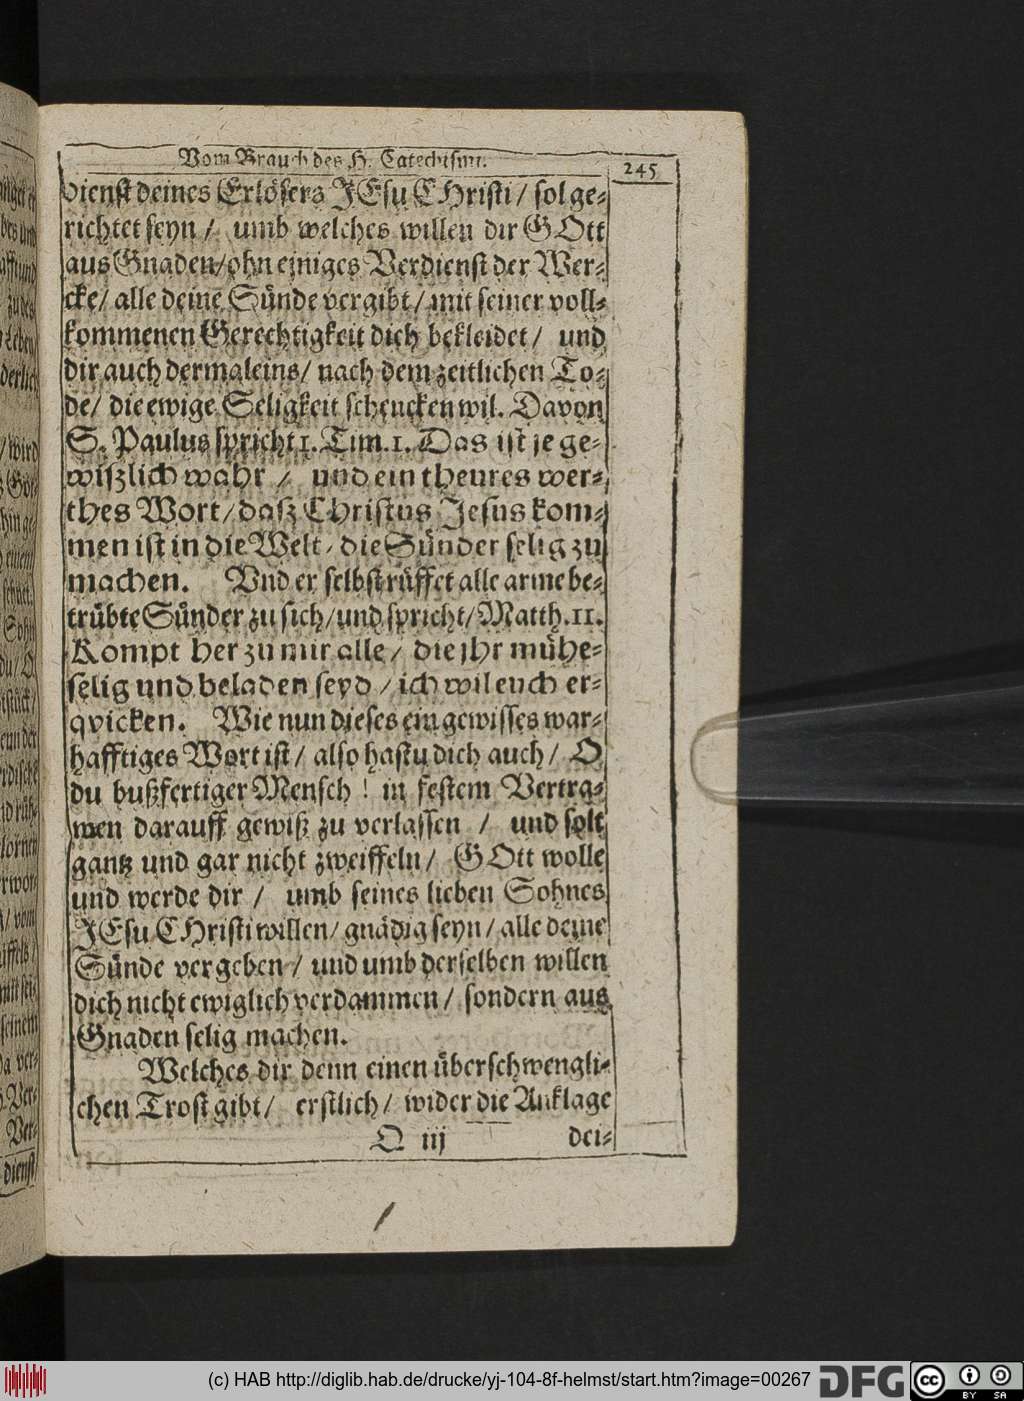 Vom Brauch des H. Catechismi.
245
dienst deines Erlösers JEsu CHristi / sol ge-
richtet seyn / umb welches willen dir GOtt
aus Gnaden / ohn einiges Verdienst der Wer-
cke / alle deine Sünde vergibt / mit seiner voll-
kommenen Gerechtigkeit dich bekleidet / und
dir auch dermaleins / nach dem zeitlichen To-
de / die ewige Seligkeit schencken wil. Davon
S. Paulus spricht 1. Tim. 1. Das ist je ge-
wißlich wahr / und ein theures wer-
thes Wort / daß Christus Jesus kom-
men ist in die Welt / die Sünder selig zu
machen. Vnd er selbst rüffet alle arme be-
trübte Sünder zu sich / und spricht / Matth. 11.
Kompt her zu mir alle / die jhr mühe-
selig und beladen seyd / ich wil euch er-
qvicken. Wie nun dieses ein gewisses war-
hafftiges Wort ist / also hastu dich auch / O
du bußfertiger Mensch! in festem Vertra-
wen darauff gewiß zu verlassen / und solt
gantz und gar nicht zweiffeln / GOtt wolle
und werde dir / umb seines lieben Sohnes
JEsu CHristi willen / gnädig seyn / alle deine
Sünde vergeben / und umb derselben willen
dich nicht ewiglich verdammen / sondern aus
Gnaden selig machen.
Welches dir denn einen überschwengli-
chen Trost gibt / erstlich / wider die Anklage
Q iij
dei-
(c) HAB http://diglib.hab.de/drucke/yj-104-8f-helmst/start.htm?image=00267
DFG
cc
BY SA